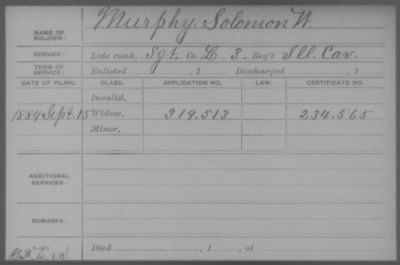 NAME OF SOLDIER: Murphy, Solomon W.
SERVICE: Late rank, Sgt. Co. L, 3, Reg't Ill. Cav.
TERM OF SERVICE: Enlisted , 1 Discharged , 1
DATE OF FILING. CLASS. APPLICATION NO. LAW. CERTIFICATE NO.
Invalid,
1884 Sept. 15 Widow, 319,513 234,565
Minor,
ADDITIONAL SERVICES:
REMARKS:
Died , 1 , at